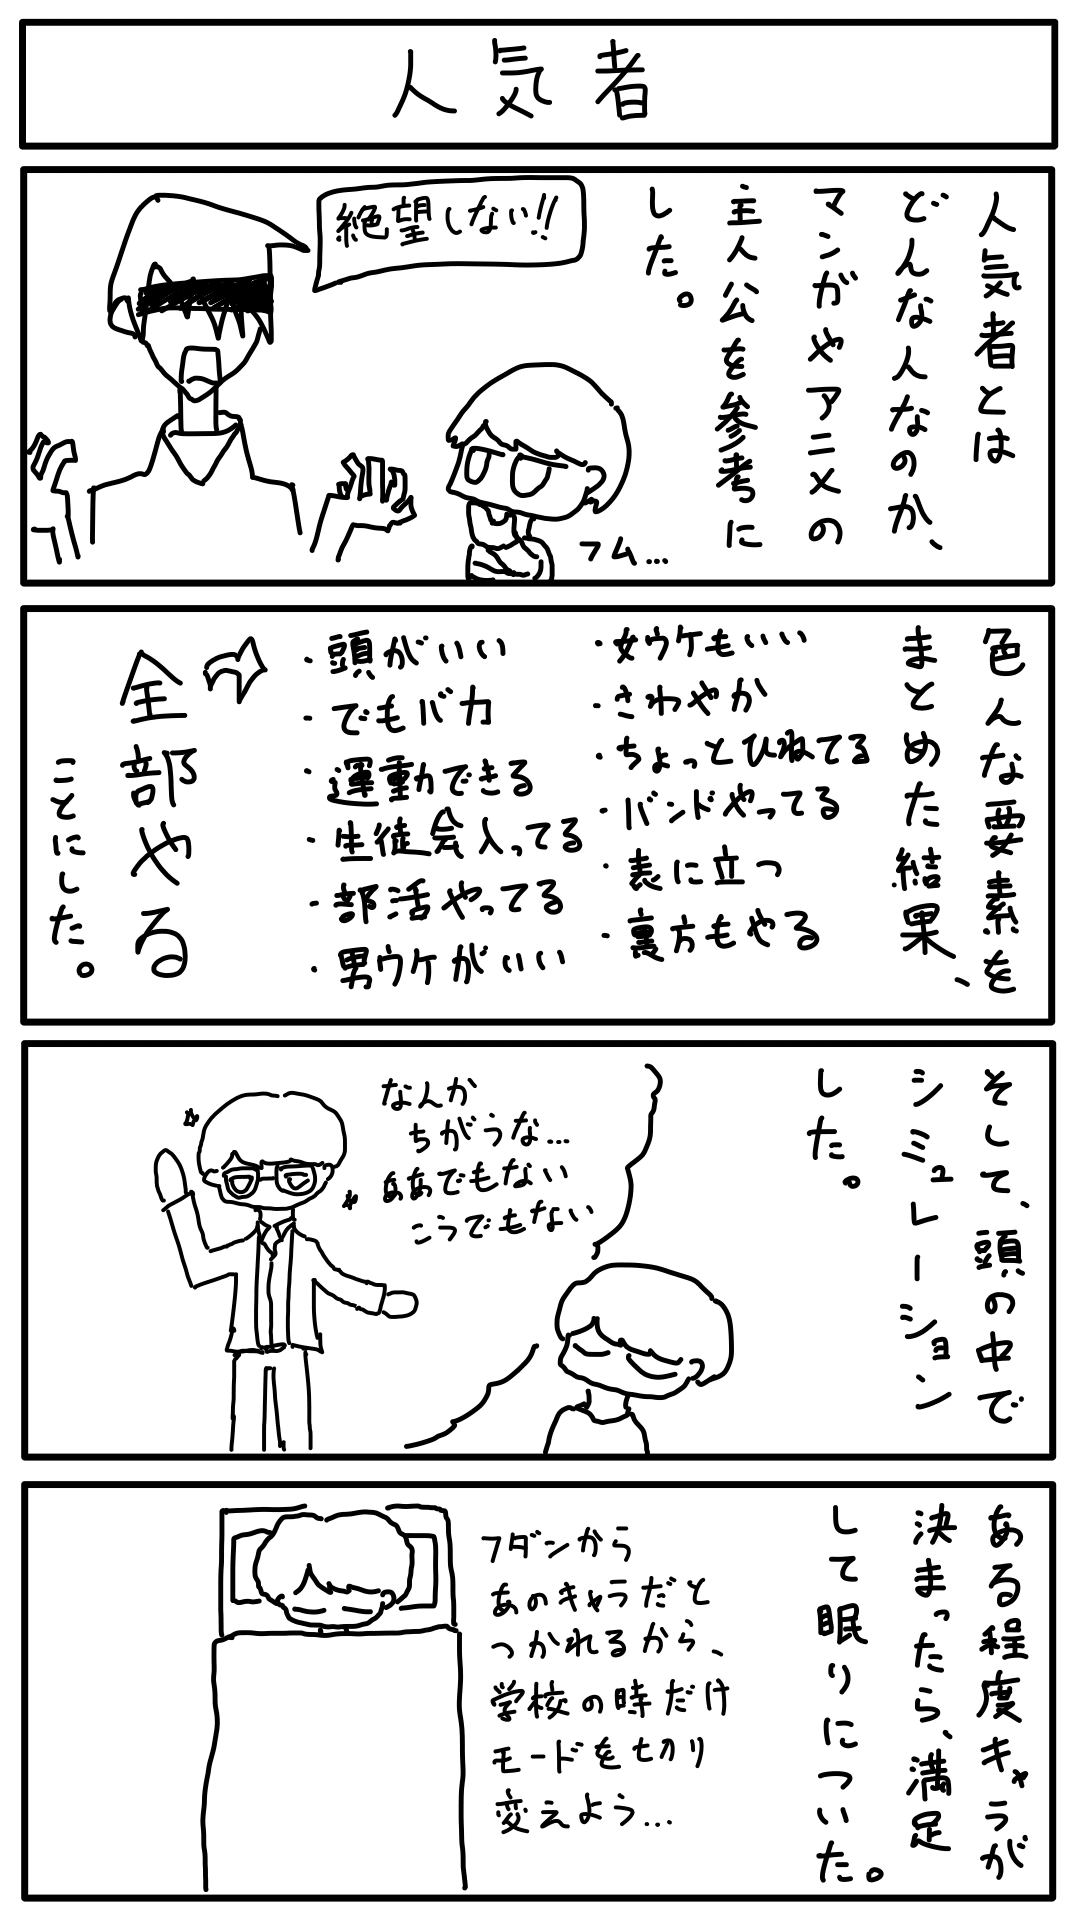 人気者
人気者とは
どんな人なのか、
マンガやアニメの
主人公を参考に
した。
絶望しない!!
フム…
色んな要素を
まとめた結果、
・女ウケもいい
・さわやか
・ちょっとひねてる
・バンドやってる
・表に立つ
・裏方もやる
・頭がいい
・でもバカ
・運動できる
・生徒会入ってる
・部活やってる
・男ウケがいい
全部やる
ことにした。
そして、頭の中で
シミュレーション
した。
なんか
ちがうな…
ああでもない
こうでもない
ある程度キャラが
決まったら、満足
して眠りについた。
フダンから
あのキャラだと
つかれるから、
学校の時だけ
モードを切り
変えよう…